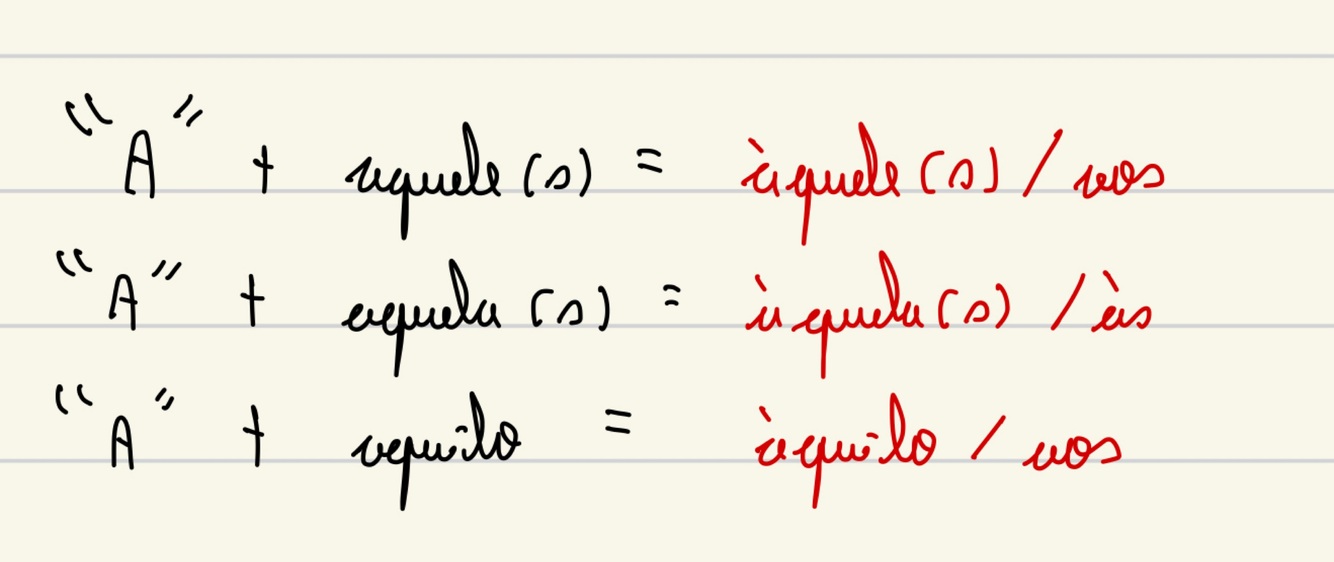 "A" + aquele(s) = àquele(s) / aos
"A" + aquela(s) = àquela(s) / às
"A" + aquilo = àquilo / aos